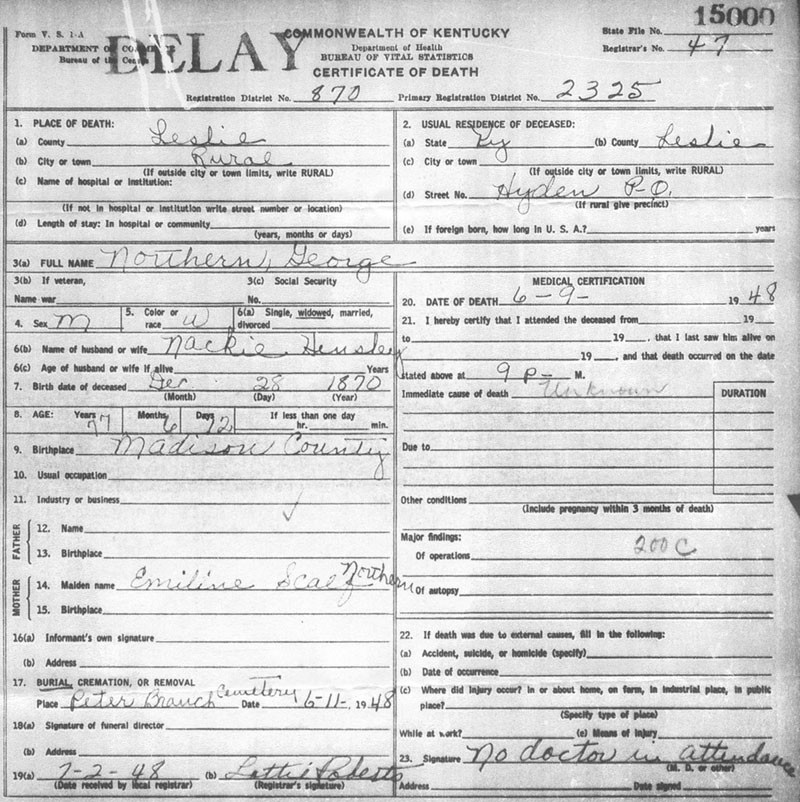 15000
Form V. S. 1-A
DEPARTMENT OF COM
Bureau of the Census
DELAY
COMMONWEALTH OF KENTUCKY
Department of Health
BUREAU OF VITAL STATISTICS
CERTIFICATE OF DEATH
State File No.
Registrar's No. 47
Registration District No. 870 Primary Registration District No. 2325
1. PLACE OF DEATH:
(a) County Leslie
(b) City or town Rural
(If outside city or town limits, write RURAL)
(c) Name of hospital or institution:
(If not in hospital or institution write street number or location)
(d) Length of stay: In hospital or community
(years, months or days)
2. USUAL RESIDENCE OF DECEASED:
(a) State Ky (b) County Leslie
(c) City or town
(If outside city or town limits, write RURAL)
(d) Street No. Hyden P-O.
(If rural give precinct)
(e) If foreign born, how long in U. S. A.? years
3(a) FULL NAME Northern, George
3(b) If veteran, 3(c) Social Security
Name war No.
4. Sex M 5. Color or race W 6(a) Single, widowed, married, divorced
6(b) Name of husband or wife Nackie Hensley
6(c) Age of husband or wife if alive Years
7. Birth date of deceased Dec. 28 1870
(Month) (Day) (Year)
8. AGE: Years Months Days If less than one day
77 6 12 hr. min.
9. Birthplace Madison County
10. Usual occupation
11. Industry or business
FATHER
12. Name
13. Birthplace
MOTHER
14. Maiden name Emiline Northern
15. Birthplace
16(a) Informant's own signature
(b) Address
17. BURIAL, CREMATION, OR REMOVAL
Place Peter Branch Cemetery Date 6-11- 1948
18(a) Signature of funeral director
(b) Address
19(a) 7-2-48 (b) Lottie Roberts
(Date received by local registrar) (Registrar's signature)
MEDICAL CERTIFICATION
20. DATE OF DEATH 6-9- 1948
21. I hereby certify that I attended the deceased from 19
to 19 , that I last saw him alive on
19 , and that death occurred on the date
stated above at 9 P- M.
Immediate cause of death Unknown
DURATION
Due to
Other conditions
(Include pregnancy within 3 months of death)
Major findings:
Of operations 200 C
Of autopsy
22. If death was due to external causes, fill in the following:
(a) Accident, suicide, or homicide (specify)
(b) Date of occurrence
(c) Where did injury occur? In or about home, on farm, in industrial place, in public
place?
(Specify type of place)
While at work? (e) Means of injury
23. Signature No doctor in attendance
(M. D. or other)
Address Date signed